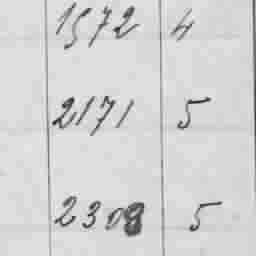 1572 4
2171 5
2308 5